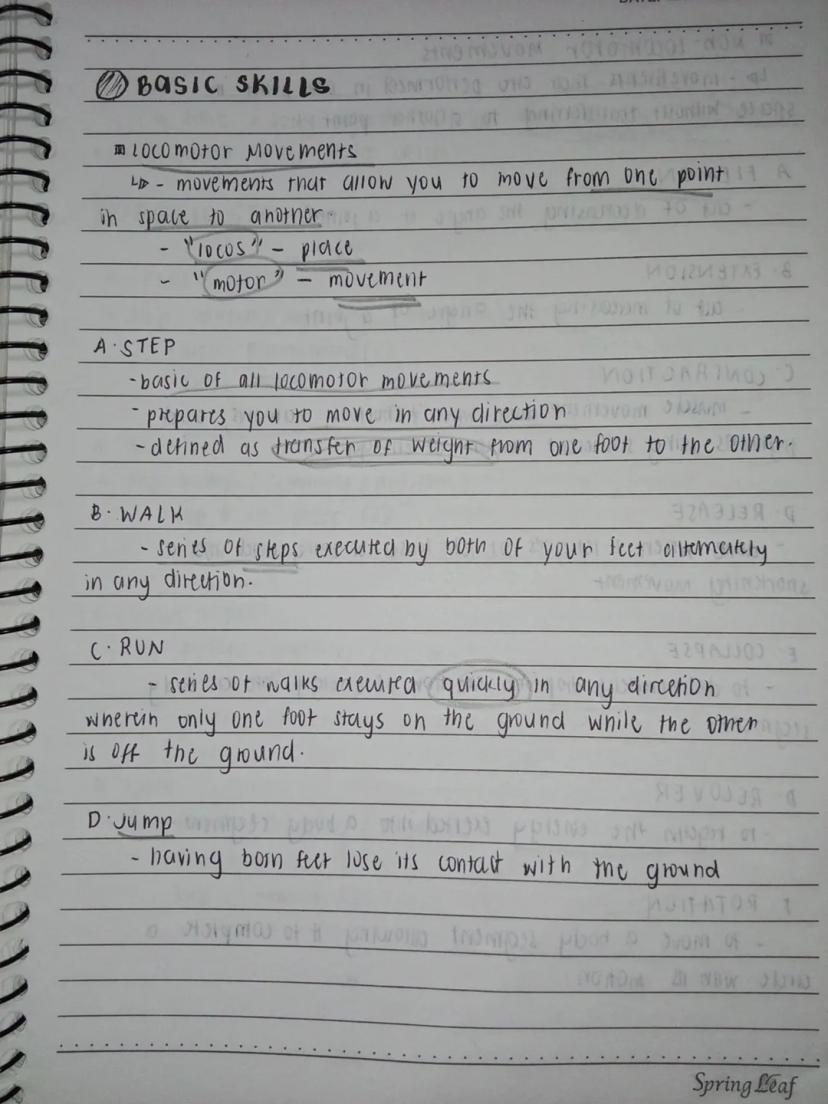 BASIC SKILLS
LOCOMOTOR MOVEMENTS
- movements that allow you to move from one point
in space to another.
- "locos" - place
- "motor" - movement
A. STEP
- basic of all locomotor movements
- prepares you to move in any direction
- defined as transfer of weight from one foot to the other.
B. WALK
- series of steps executed by both of your feet alternately
in any direction.
C. RUN
- series of walks executed quickly in any direction
wherein only one foot stays on the ground while the other
is off the ground.
D. Jump
- having both feet lose its contact with the ground
Spring Leaf